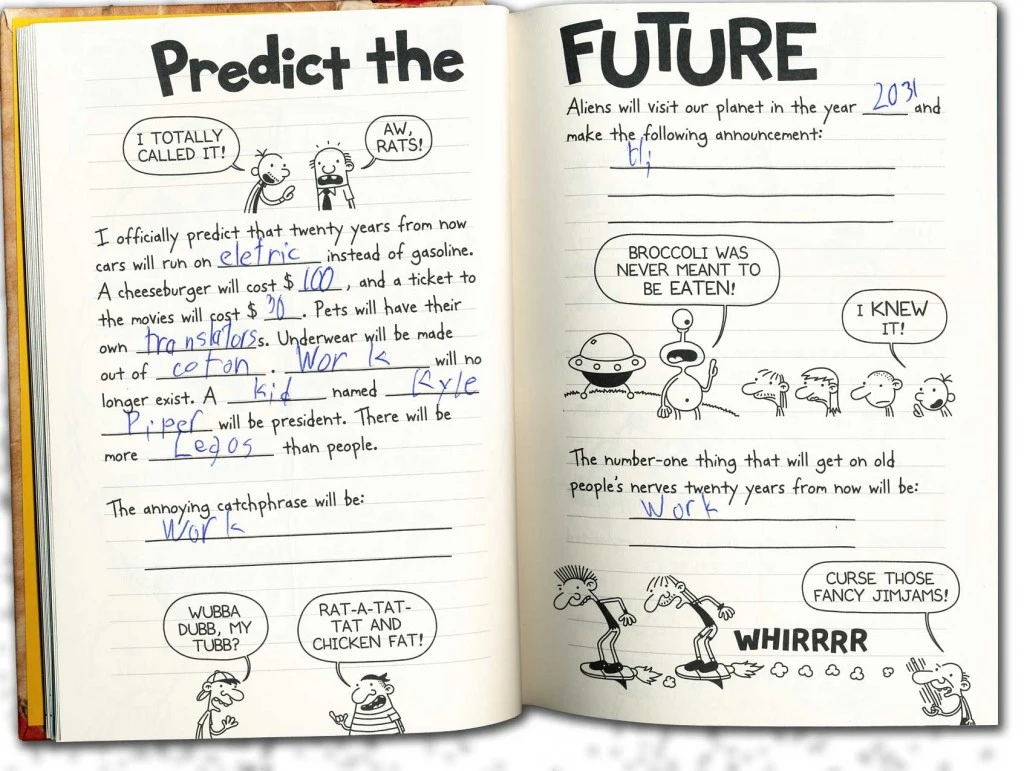 Predict the
I TOTALLY
CALLED IT!
AW,
RATS!
I officially predict that twenty years from now
cars will run on eletric instead of gasoline.
A cheeseburger will cost $ 100, and a ticket to
the movies will cost $ 30. Pets will have their
own translatorss. Underwear will be made
out of coton. Work will no
longer exist. A kid named Kyle
Piper will be president. There will be
more Legos than people.
The annoying catchphrase will be:
Work
WUBBA
DUBB, MY
TUBB?
RAT-A-TAT-
TAT AND
CHICKEN FAT!
FUTURE
Aliens will visit our planet in the year 2031 and
make the following announcement:
BROCCOLI WAS
NEVER MEANT TO
BE EATEN!
I KNEW
IT!
The number-one thing that will get on old
people's nerves twenty years from now will be:
Work
CURSE THOSE
FANCY JIMJAMS!
WHIRRRR